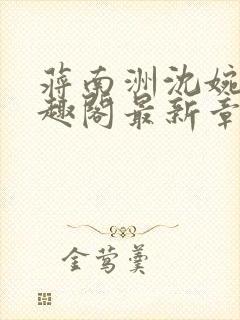 蒋南洲沈婉
趣阁最新章
金莺羹